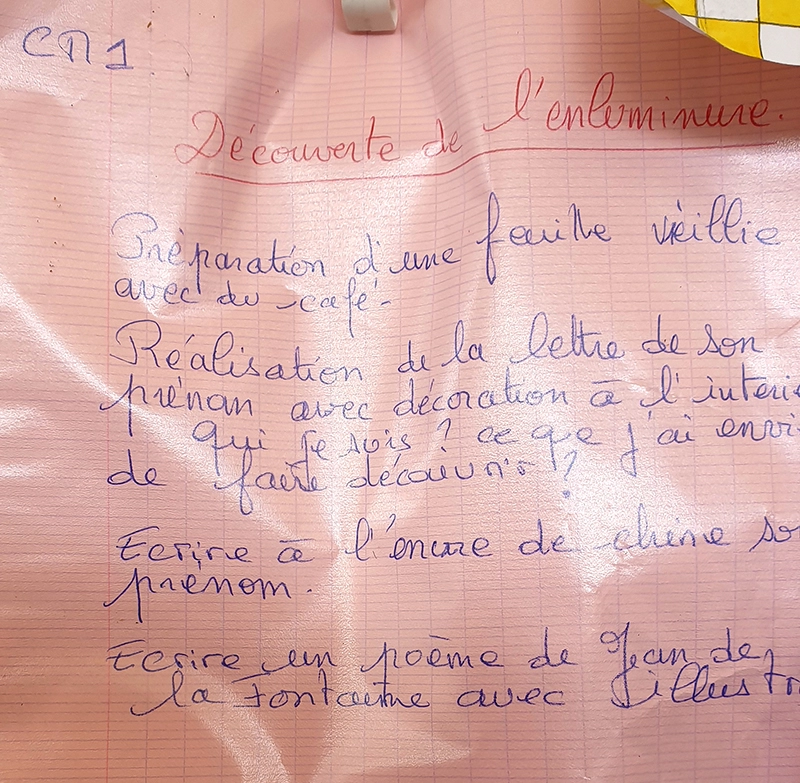 CM1
Découverte de l'enluminure.
Préparation d'une feuille vieillie
avec du café-
Réalisation de la lettre de son
prénom avec décoration à l'intéri
qui je suis ? ce que j'ai envi
de faire découvrir ?
Ecrire à l'encre de chine so
prénom.
Ecrire un poème de Jean de
la Fontaine avec l'illustr